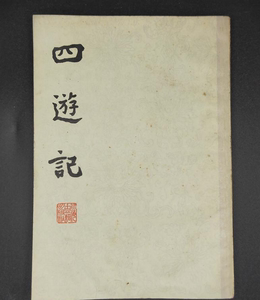 四遊記